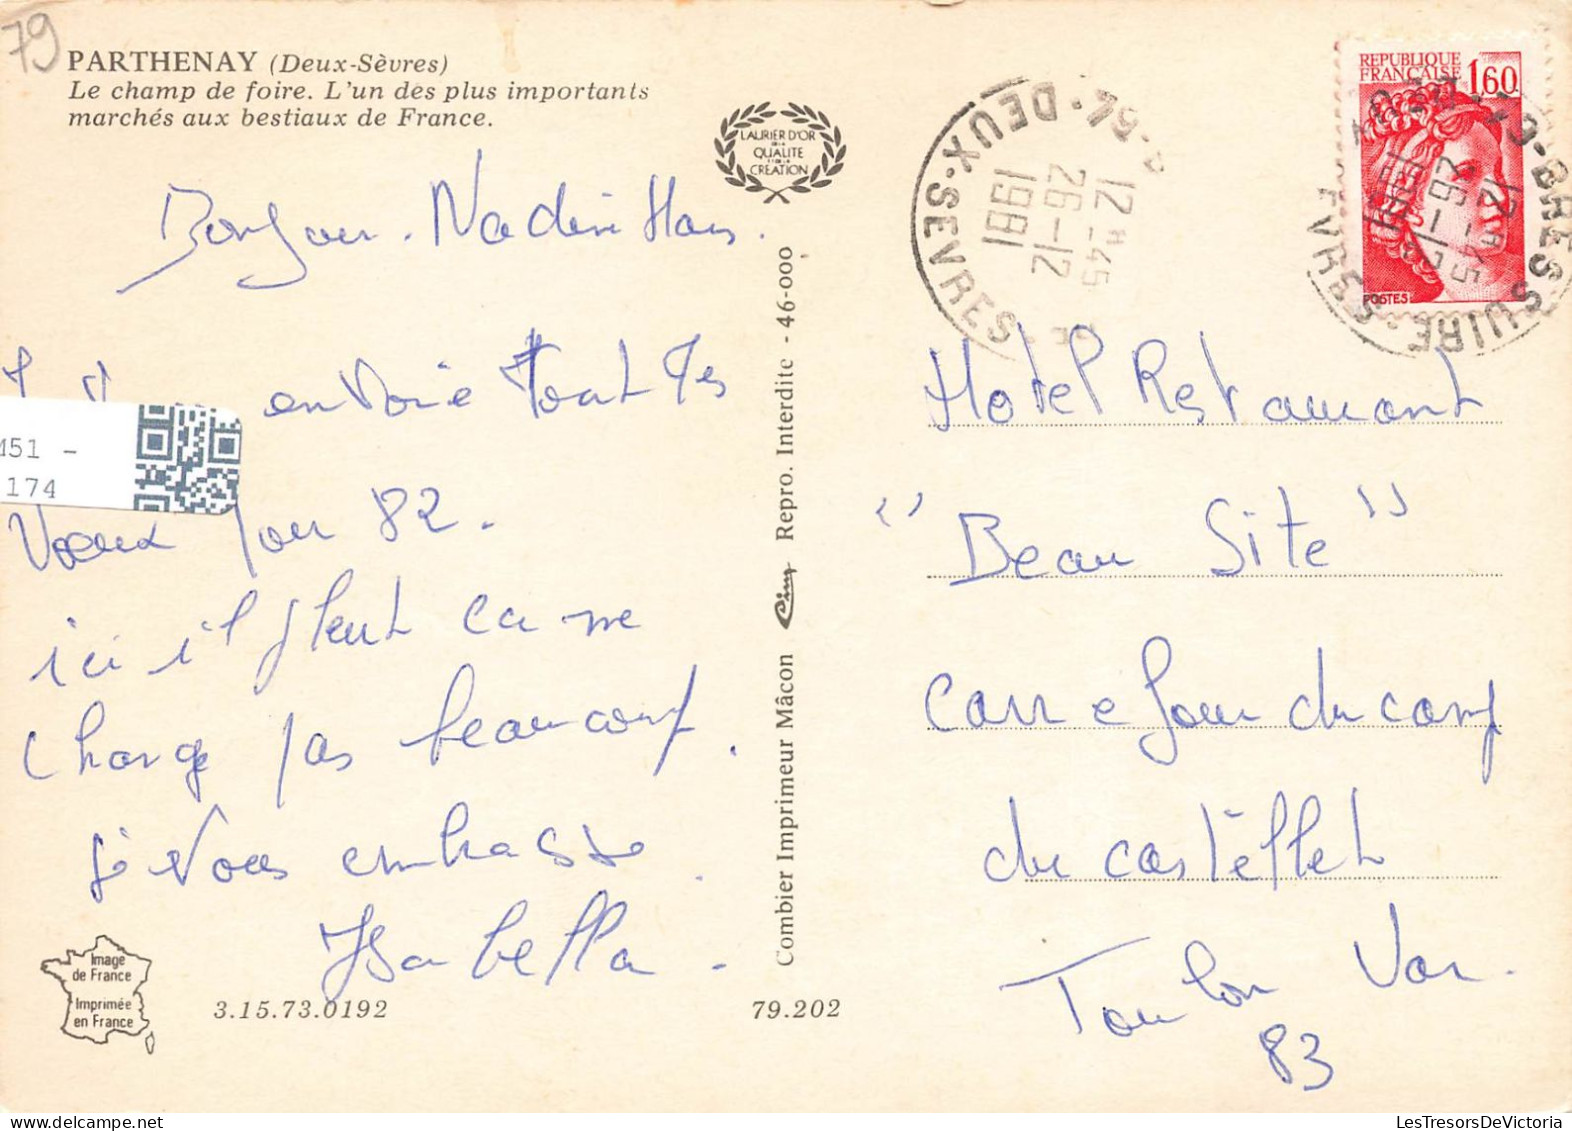 79
PARTHENAY (Deux-Sèvres)
Le champ de foire. L'un des plus importants
marchés aux bestiaux de France.
LAURIER D'OR
DE LA
QUALITE
ET DE LA
CREATION
REPUBLIQUE
FRANÇAISE
1,60
POSTES
DEUX-SEVRES
12H45
26-12
1981
79-BRESSUIRE
12H45
26-12
1981
Bonjour. Nadine
envoie tout
Vœux pour 82.
ici il pleut ca me
change pas beaucoup.
je vous embrasse
Isabella.
M51 -
174
Hotel Restaurant
"Beau Site"
carrefour du camp
du castellet
Toulon Var.
83
Combier Imprimeur Mâcon Cim Repro. Interdite - 46-000
Image
de France
Imprimée
en France
3.15.73.0192
79.202
LesTresorsDeVictoria.com